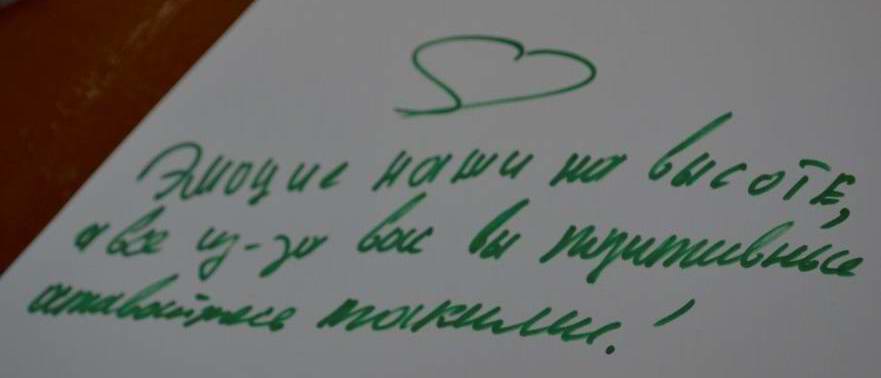 Эмоции наши на высоте,
а все из-за вас вы позитивные
оставайтесь такими!